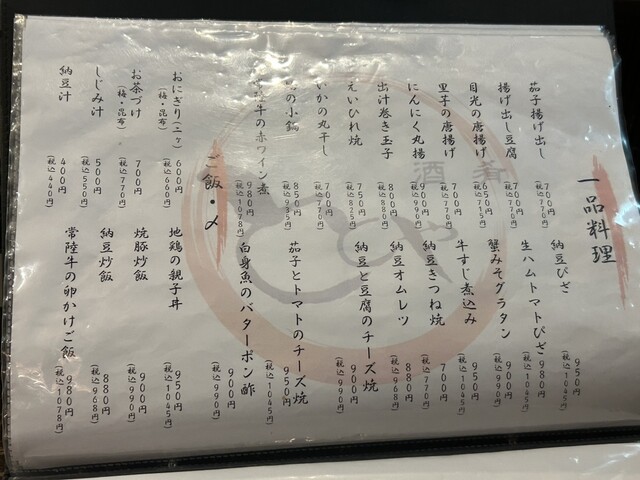 一品料理
茄子揚げ出し 700円 (税込770円)
揚げ出し豆腐 700円 (税込770円)
目光の唐揚げ 650円 (税込715円)
里芋の唐揚げ 700円 (税込770円)
にんにく丸揚 900円 (税込990円)
出汁巻き玉子 800円 (税込880円)
えいひれ焼 750円 (税込825円)
いかの丸干し 700円 (税込770円)
の小鍋 850円 (税込935円)
牛の赤ワイン煮 980円 (税込1078円)
納豆ぴざ 950円 (税込1045円)
生ハムトマトぴざ 950円 (税込1045円)
蟹みそグラタン 900円 (税込990円)
牛すじ煮込み 950円 (税込1045円)
納豆きつね焼 700円 (税込770円)
納豆オムレツ 880円 (税込968円)
納豆と豆腐のチーズ焼 900円 (税込990円)
茄子とトマトのチーズ焼 950円 (税込1045円)
白身魚のバターポン酢 900円 (税込990円)
ご飯・〆
おにぎり(二ヶ) 600円 (税込660円)
(梅・昆布)
お茶づけ 700円 (税込770円)
(梅・昆布)
しじみ汁 500円 (税込550円)
納豆汁 400円 (税込440円)
地鶏の親子丼 950円 (税込1045円)
焼豚炒飯 900円 (税込990円)
納豆炒飯 880円 (税込968円)
常陸牛の卵かけご飯 980円 (税込1078円)
酒肴